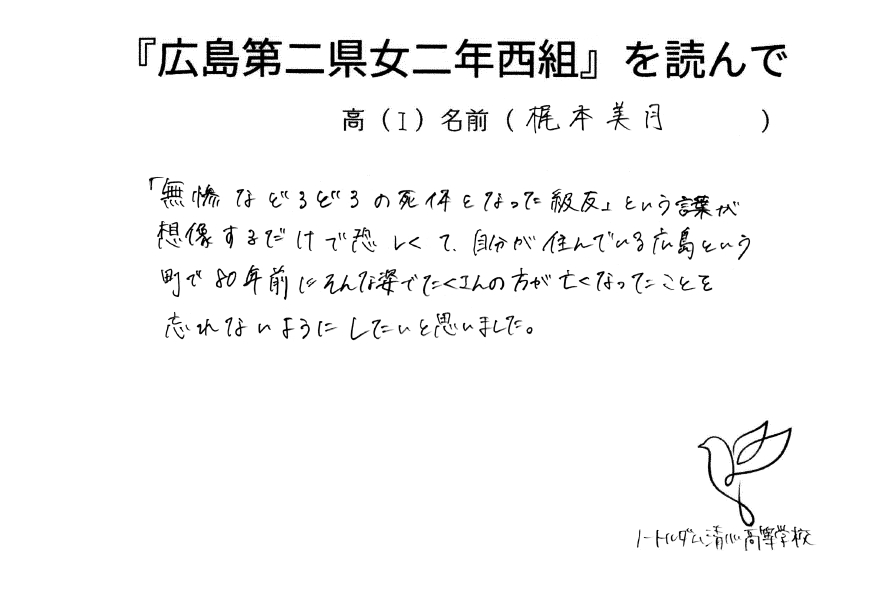 『広島第二県女二年西組』を読んで
高（I）名前（梶本美月）
「無惨などろどろの死体となった級友」という言葉が
想像するだけで恐しくて、自分が住んでいる広島という
町で80年前にそんな姿でたくさんの方が亡くなったことを
忘れないようにしたいと思いました。
ノートルダム清心高等学校